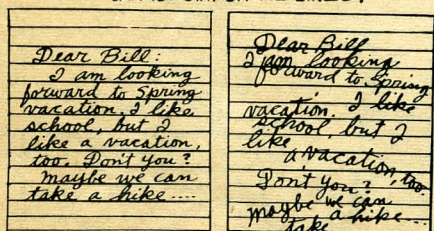 Dear Bill:
I am looking
forward to Spring
vacation. I like
school, but I
like a vacation,
too. Don't you?
Maybe we can
take a hike....
Dear Bill
I am looking
forward to Spring
vacation. I like
school but I
like
a vacation, too.
Don't you?
Maybe we can
take a hike...